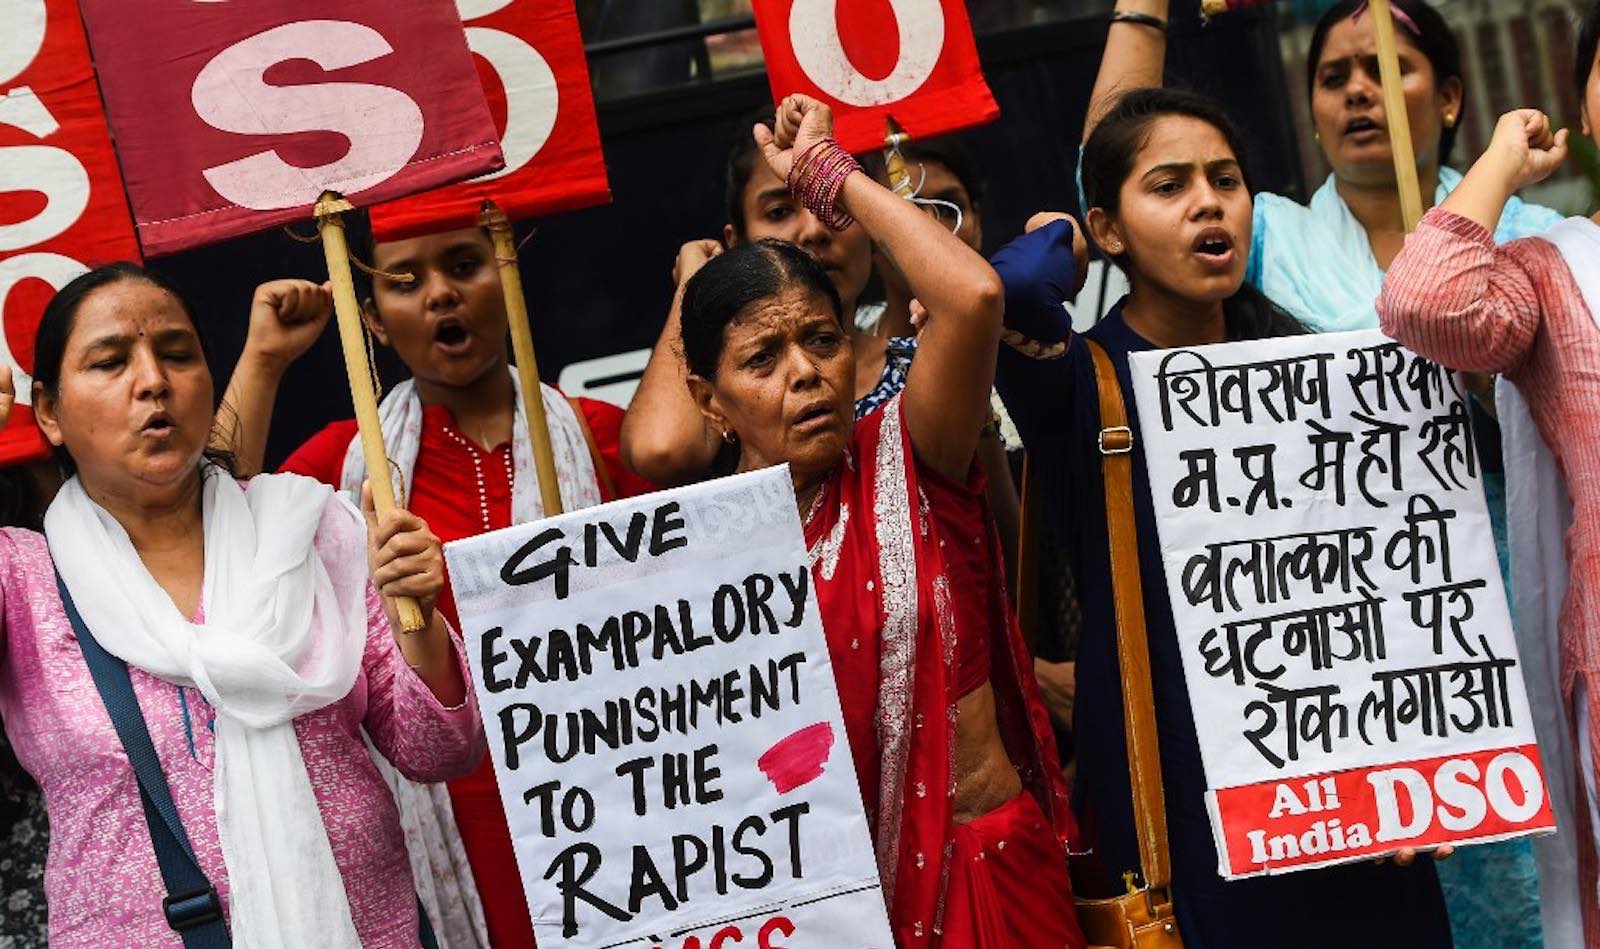 S
S
O
O
GIVE
EXAMPALORY
PUNISHMENT
TO THE
RAPIST
शिवराज सरकार
म.प्र. मे हो रही
बलात्कार की
घटनाओ पर
रोक लगाओ
All
India DSO